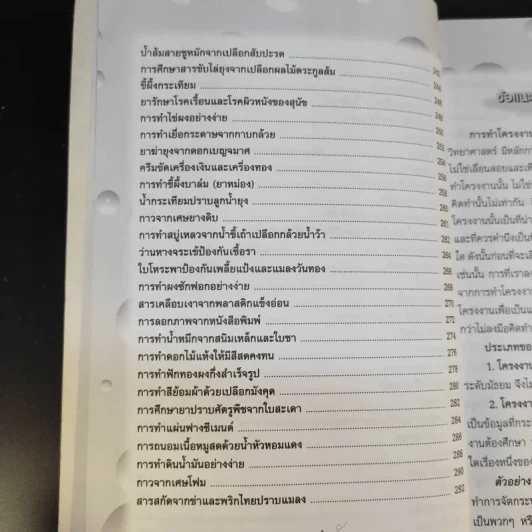 น้ำส้มสายชูหมักจากเปลือกสับปะรด
การศึกษาสารขับไล่ยุงจากเปลือกผลไม้ตระกูลส้ม
ขี้ผึ้งกระเทียม
ยารักษาโรคเรื้อนและโรคผิวหนังของสุนัข
การทำไข่ผงอย่างง่าย
การทำเยื่อกระดาษจากกาบกล้วย
ยาฆ่ายุงจากดอกเบญจมาศ
ครีมขัดเครื่องเงินและเครื่องทอง
การทำขี้ผึ้งบาล์ม (ยาหม่อง)
น้ำกระเทียมปราบลูกน้ำยุง
กาวจากเศษยางดิบ
การทำสบู่เหลวจากน้ำขี้เถ้าเปลือกกล้วยน้ำว้า
ว่านหางจระเข้ป้องกันเชื้อรา
ใบโหระพาป้องกันเพลี้ยแป้งและแมลงวันทอง
การทำผงซักฟอกอย่างง่าย 268
สารเคลือบเงาจากพลาสติกแข็งอ่อน 270
การลอกภาพจากหนังสือพิมพ์ 272
การทำน้ำหมึกจากสนิมเหล็กและใบชา 274
การทำดอกไม้แห้งให้มีสีสดคงทน 276
การทำฟักทองผงกึ่งสำเร็จรูป 278
การทำสีย้อมผ้าด้วยเปลือกมังคุด 280
การศึกษายาปราบศัตรูพืชจากใบสะเดา 282
การทำแผ่นฟางซีเมนต์ 284
การถนอมเนื้อหมูสดด้วยน้ำหัวหอมแดง 286
การทำดินน้ำมันอย่างง่าย 288
กาวจากเศษโฟม 290
สารสกัดจากข่าและพริกไทยปราบแมลง 292
ข้อแนะ
การทำโครงงาน
วิทยาศาสตร์ มีหลักการ
ไม่ใช่เลียนลอยและเพื่
ทำโครงงานนั้น ไม่ใช่
คิดทำนั้นไม่เท่ากัน
โครงงานนั้นเป็นที่น่า
และที่ควรคำนึงเป็นที่
ใด ดังนั้นก่อนที่จะเลื
เช่นนั้น การที่เราลง
จากการทำโครงงาน
โครงงานเพื่อเป็นแ
กว่าไม่ลงมือคิดทำ
ประเภทขอ
1. โครงงาน
ระดับมัธยม จึงไม่
2. โครงงา
เป็นข้อมูลที่กระ
งานต้องศึกษา
ใดเรื่องหนึ่งของ
ตัวอย่าง
ทำการจัดกระ
เป็นพวกๆ หรื